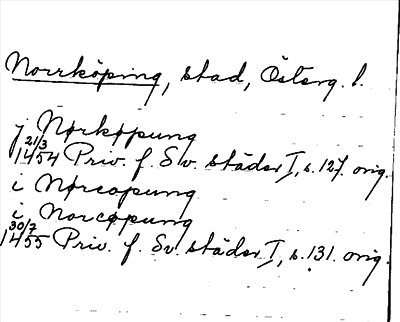 Norrköping, stad, Österg. l.
j Nørkøpung
21/3 1454 Priv. f. Sv. städer I, s. 127. orig.
i Nørcopung
i Norcøpung
30/7 1455 Priv. f. Sv. städer I, s. 131. orig.